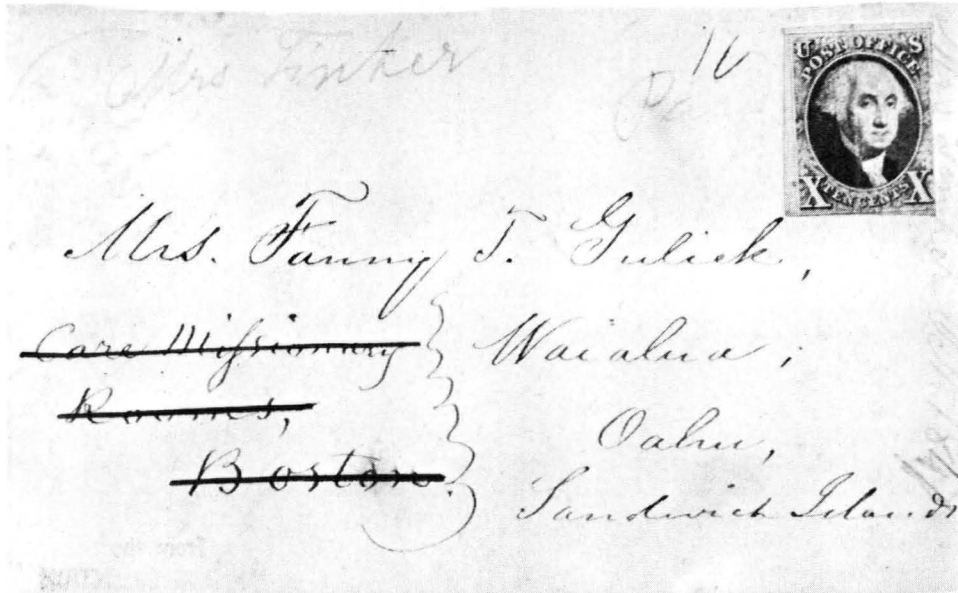 Mrs Tinker
10
Pd
U S
POST OFFICE
X TEN CENTS X
Mrs. Fanny T. Gulick,
Care Missionary
Rooms,
Boston.
Waialua,
Oahu,
Sandwich Islands